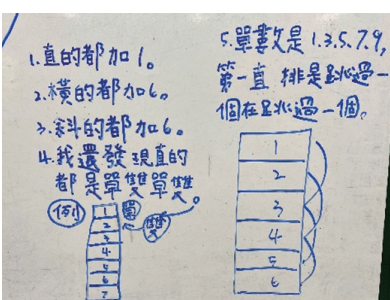 1.直的都加1。
2.橫的都加6。
3.斜的都加6。
4.我還發現真的
都是單雙單雙。
例
單
雙
1
2
3
4
5
6
7
5.單數是1.3.5.7.9,
第一直 排是跳過一
個在跳過一個。
1
2
3
4
5
6